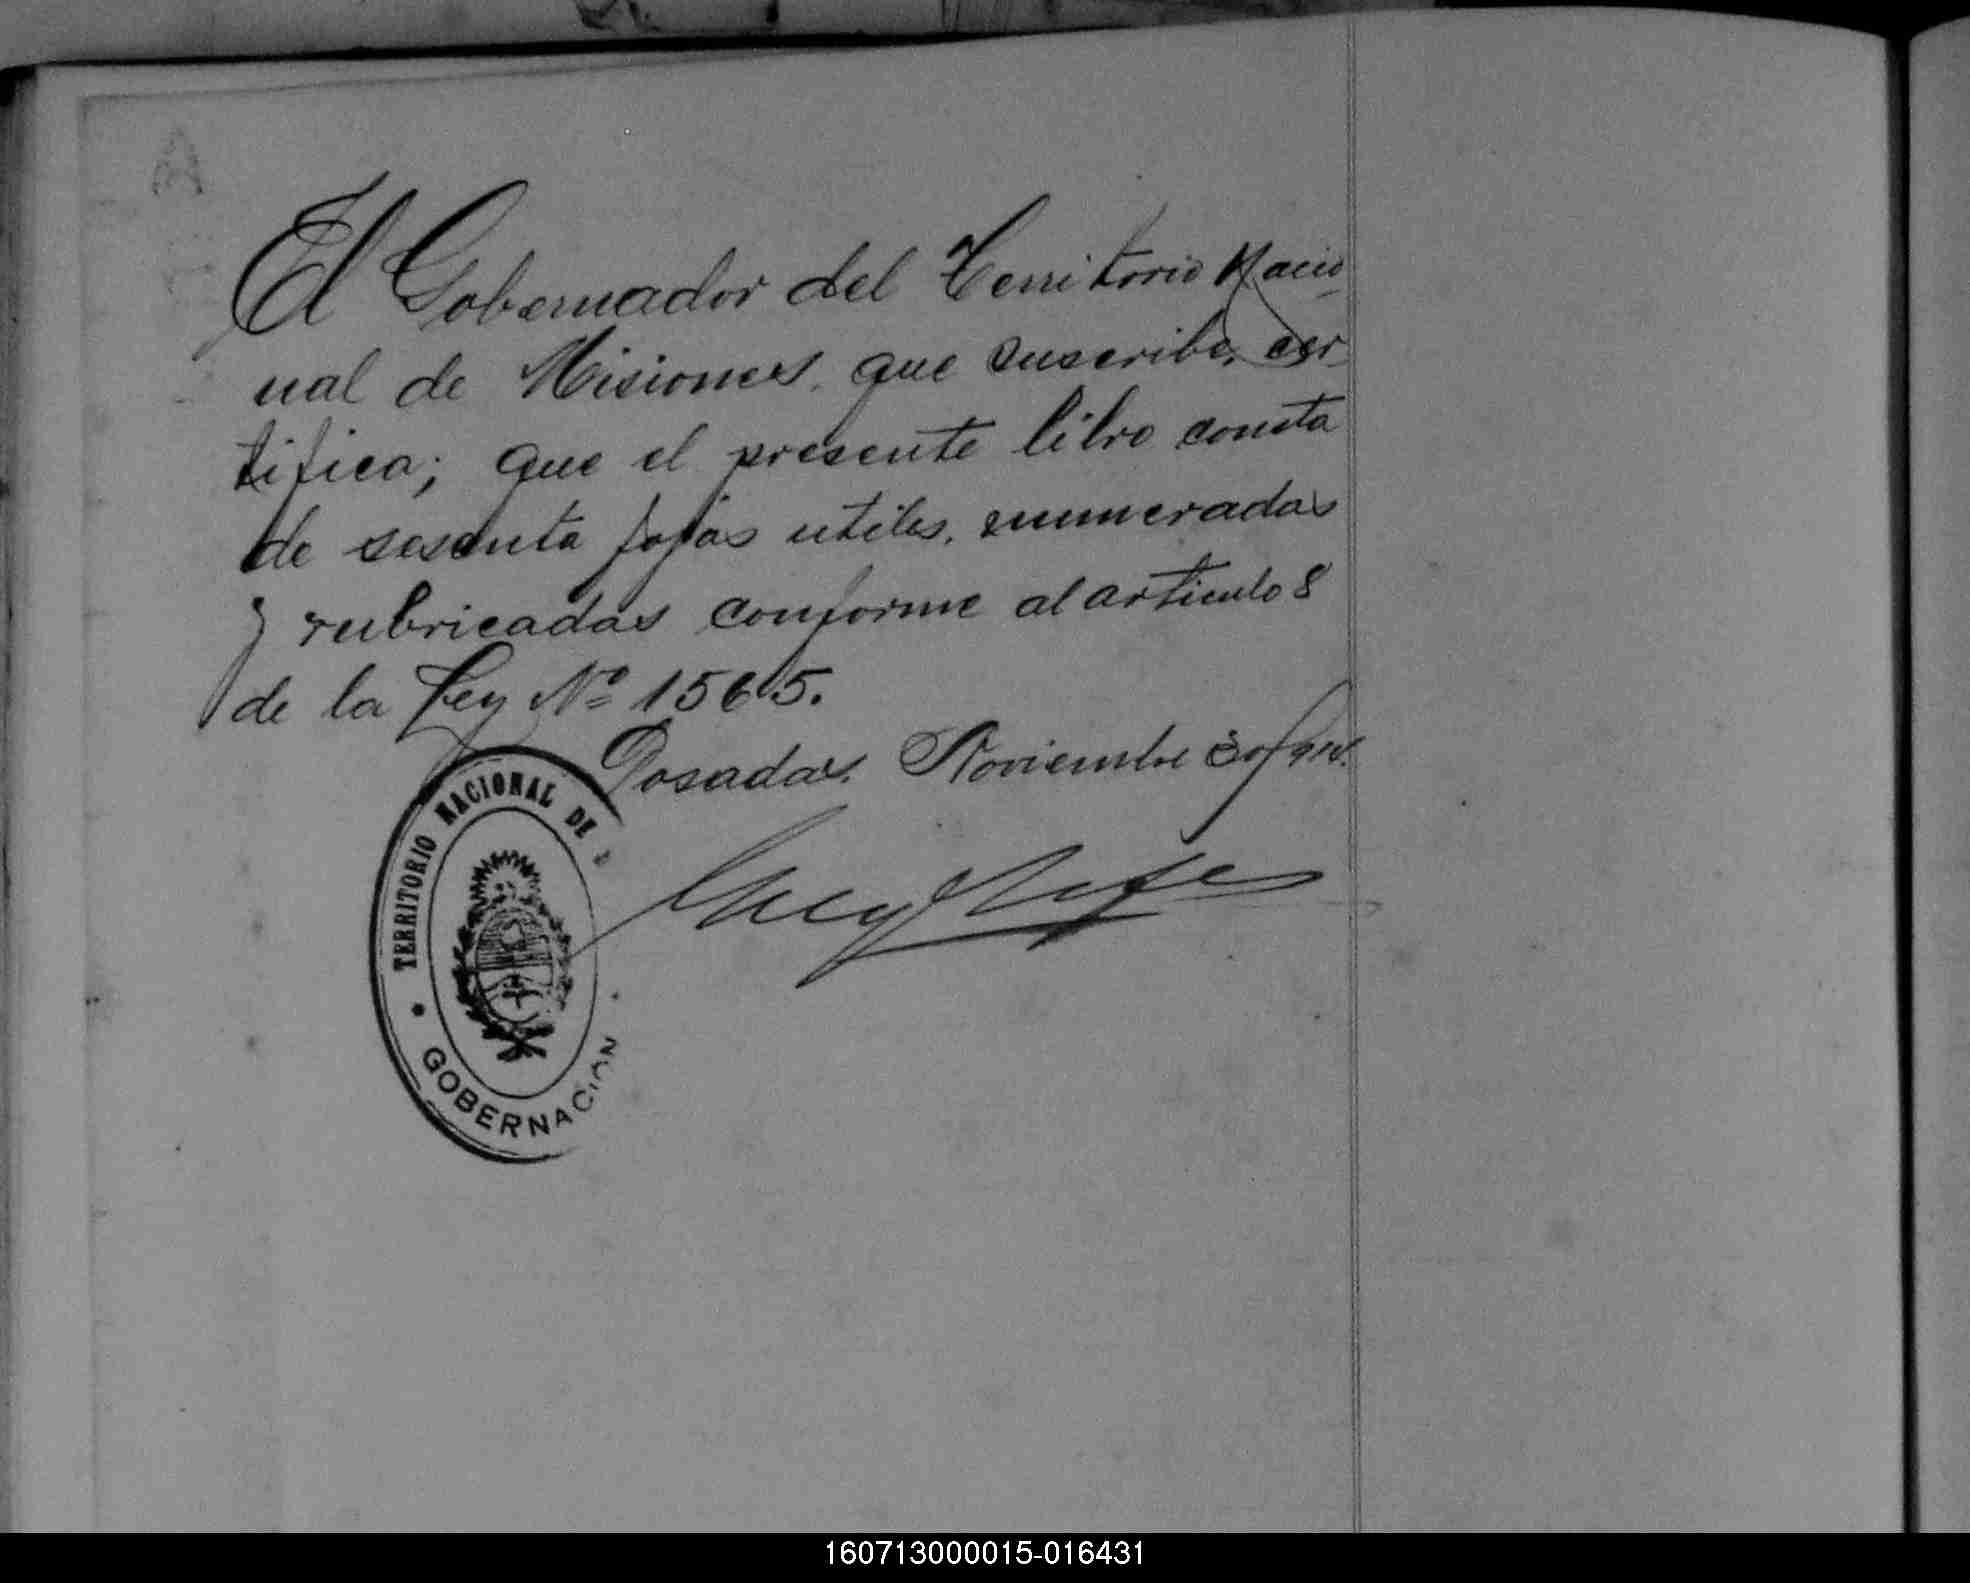 El Gobernador del Territorio Nacio-
nal de Misiones, que suscribe, cer-
tifica; que el presente libro consta
de sesenta fojas utiles, enumeradas
y rubricadas conforme al articulo 8
de la Ley Nº 1565.
Posadas. Noviembre 30/
TERRITORIO NACIONAL DE
GOBERNACIÓN
160713000015-016431